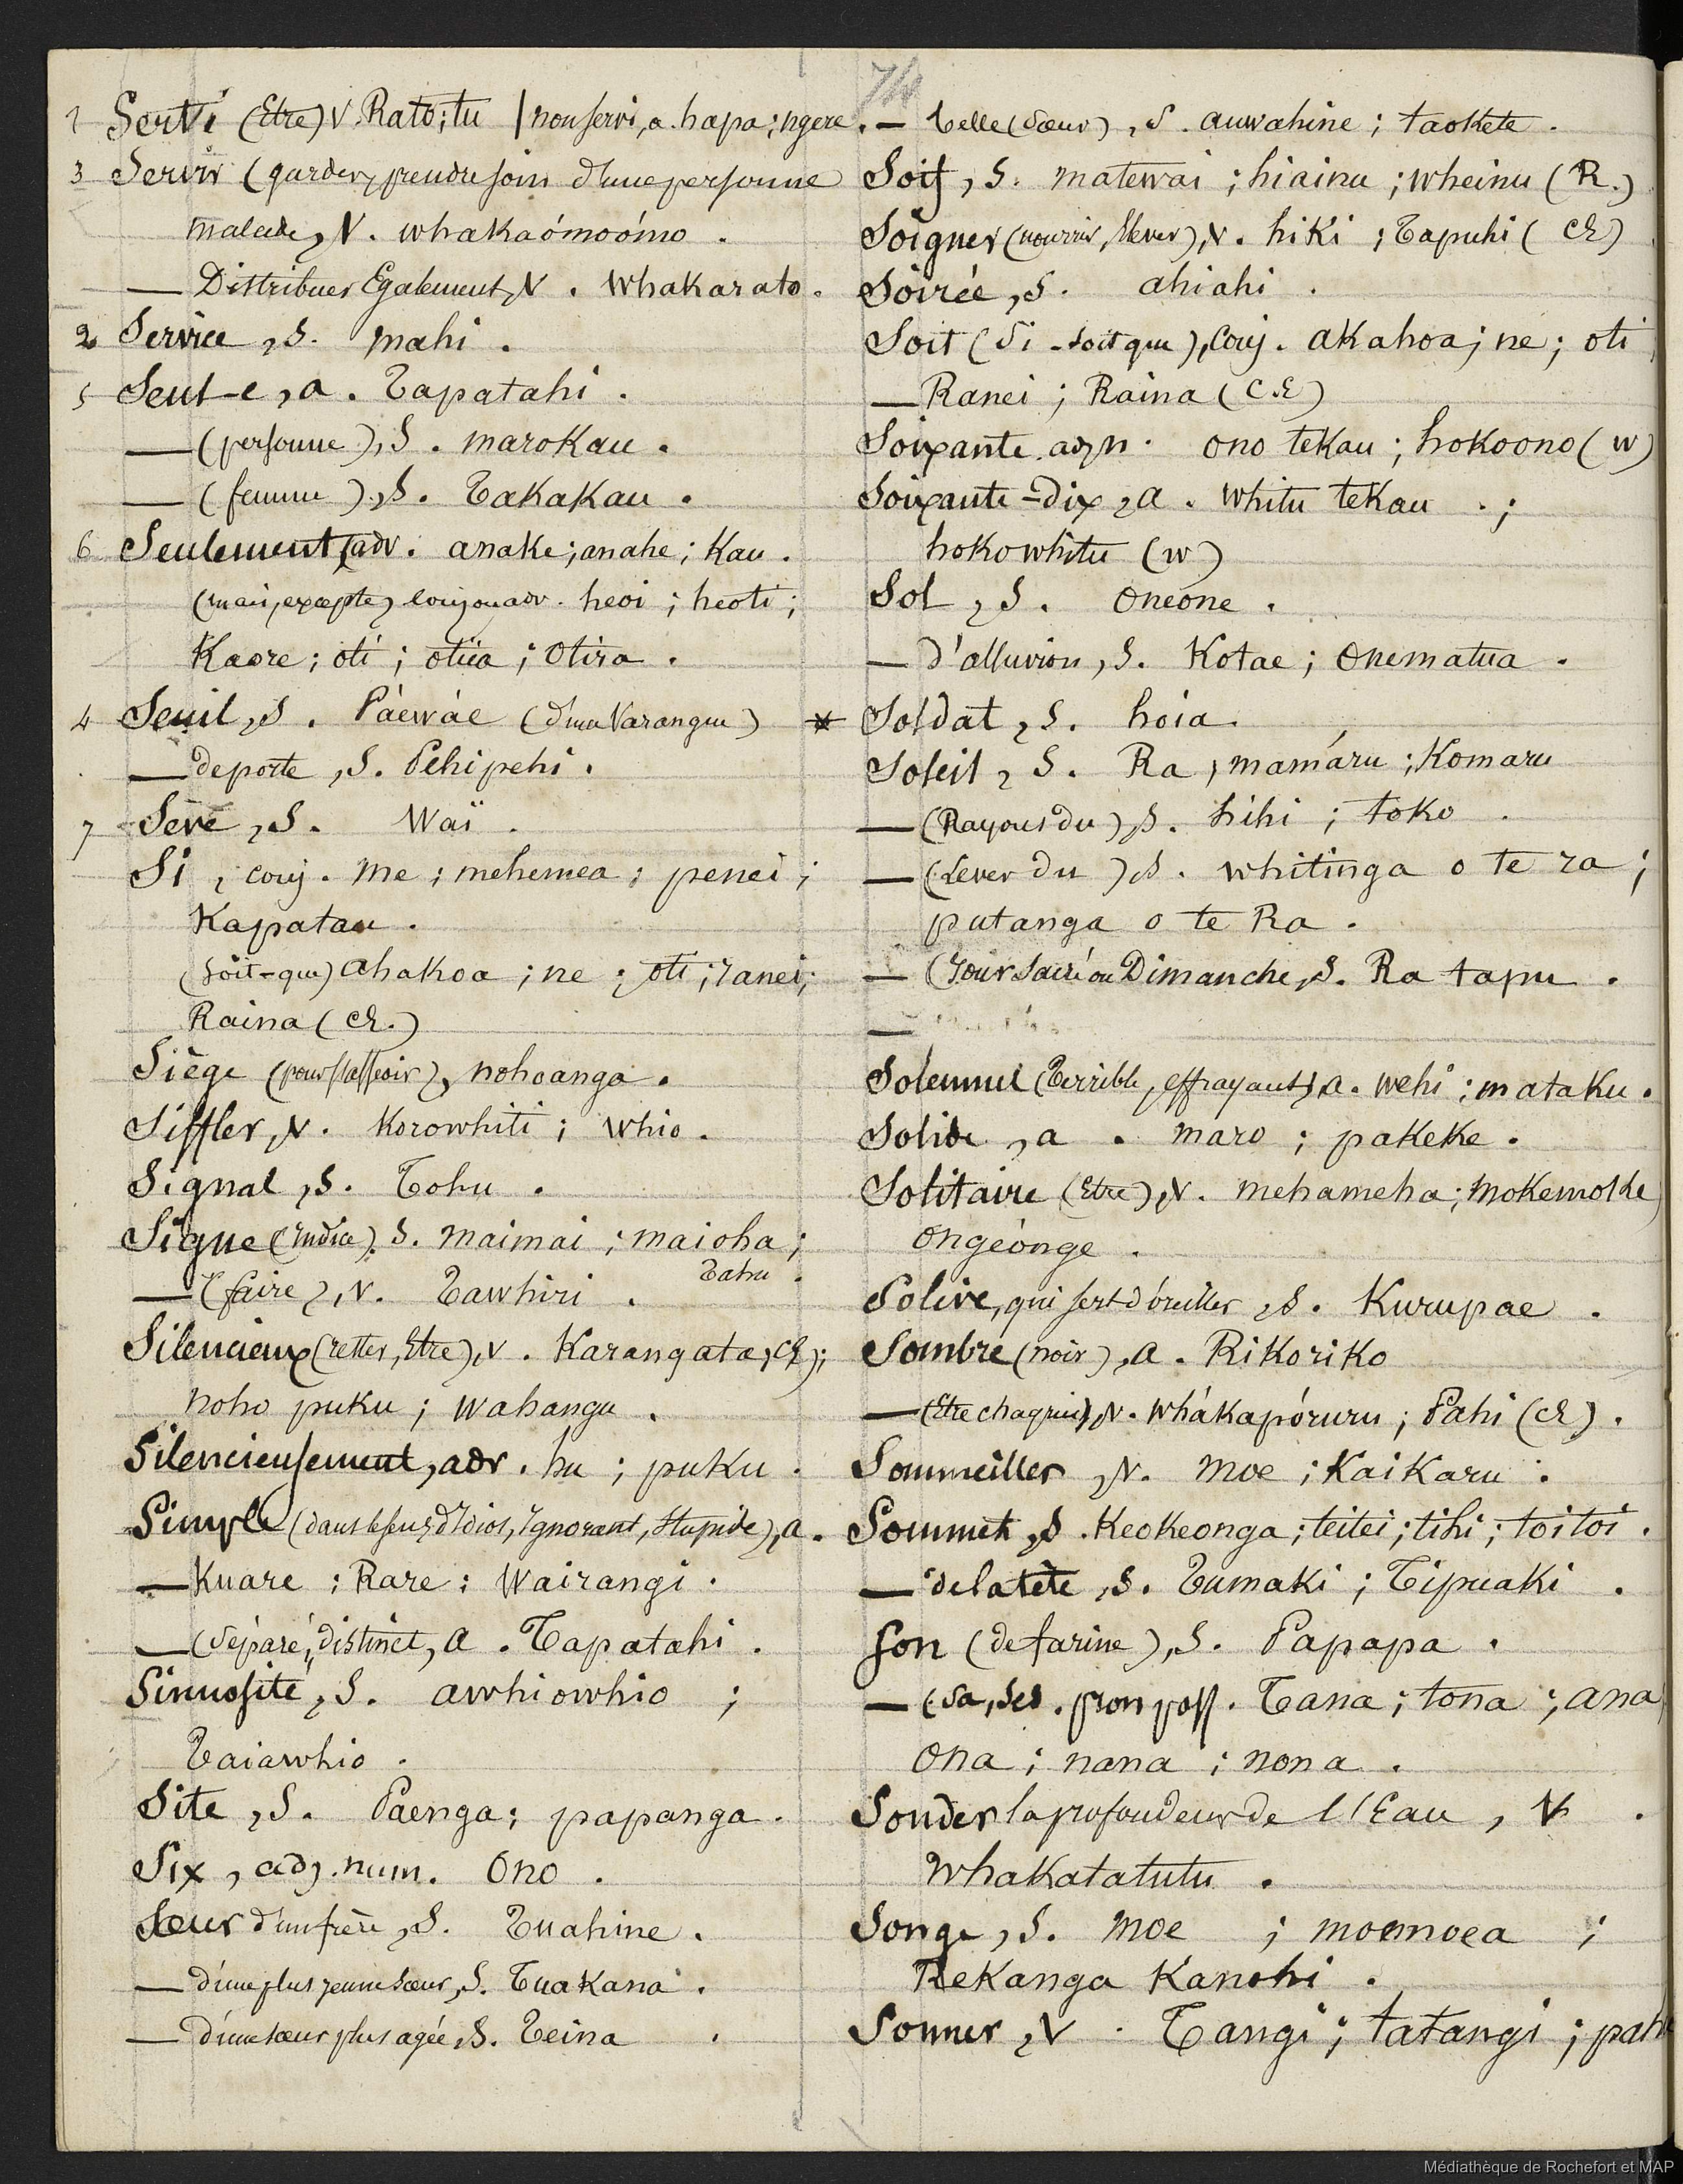 74
1 Servi (Etre) V. Rato; tu | non servi, a. hapa; ngere.
3 Servir (garder, prendre soin d'une personne
malade, V. whakaómoómo.
— Distribuer Egalement, V. Whakarato.
2 Service, S. mahi.
5 Seul-e, a. Tapatahi.
— (personne), S. marokau.
— (femme), S. Takakau.
6 Seulement, adv. anake; anahe; Kau.
(mais, excepté, conj ou adv. heoi; heoti;
Kaore; oti; otiia; Otira.
4 Seuil, S. Páewáe (d'une Varangue)
— de porte, S. Pehipehi.
7 Seve, S. Waï.
Si, conj. me; mehemea; penei;
Kapatau.
(soit-que) Ahakoa; ne; oti; ranei;
Raina (CE.)
Siège (pour s'asseoir), nohoanga.
Siffler, V. Korowhiti; Whio.
Signal, S. Tohu.
Signe (indice), S. maimai; maioha;
Tahu.
— (faire), V. Tawhiri.
Silencieux (rester, Etre), V. Karangata, CE);
noho puku; Wahangu.
Silencieusement, adv. hu; puku.
Simple (dans le sens d'Idiot, Ignorant, Stupide), a.
— Kuare; Rare; Wairangi.
— (Séparé, distinct, a. Tapatahi.
Sinuosité, S. awhiowhio;
Taiawhio.
Site, S. Paenga; papanga.
Six, adj. num. Ono.
Sœur d'un frère, S. Tuahine.
— d'une plus jeune sœur, S. Tuakana.
— d'une sœur plus agée, S. Teina.
— belle (Sœur), S. auwahine; taokete.
Soif, S. matewai; hiainu; wheinu (R.)
Soigner (nourrir, élever), V. hiki; Tapuhi (CE)
Soirée, S. ahiahi.
Soit (Si - soit que), Conj. akahoa; ne; oti
— Ranei; Raina (C.E)
Soixante adj n. ono tekau; hokoono (W)
Soixante-Dix, a. whitu tekau.;
hokowhitu (W)
Sol, S. Oneone.
— d'alluvion, S. Kotae; Onematua.
* Soldat, S. hoia.
Soleil, S. Ra; mamáru; Komaru
— (Rayons du), S. hihi; toko.
— (Lever du), S. whitinga o te ra;
putanga o te Ra.
— (Jour Sacré ou Dimanche, S. Ra tapu.
—
Solennel (Terrible, effrayant), a. wehi; mataku.
Solide, a. maro; pakeke.
Solitaire (Etre), V. mehameha; mokemoke
ongeónge.
Solive, qui sert d'oreiller, S. Kurupae.
Sombre (noir), a. Rikoriko
— (Etre chagrin), V. Whákapóruru; Pahi (CE).
Sommeiller, V. Moe; Kaikaru.
Sommet, S. Keokeonga; teitei; tihi; toitoi.
— de la tête, S. Tumaki; Tipuaki.
Son (de farine), S. Papapa.
— (Sa, Ses. pron poss. Tana; tona; ana
Ona; nana; nona.
Sonder la profondeur de l'Eau, V.
Whakatatutu.
Songe, S. moe; moemoea;
Rekanga Kanohi.
Sonner, V. Tangi; tatangi;
Médiathèque de Rochefort et MAP